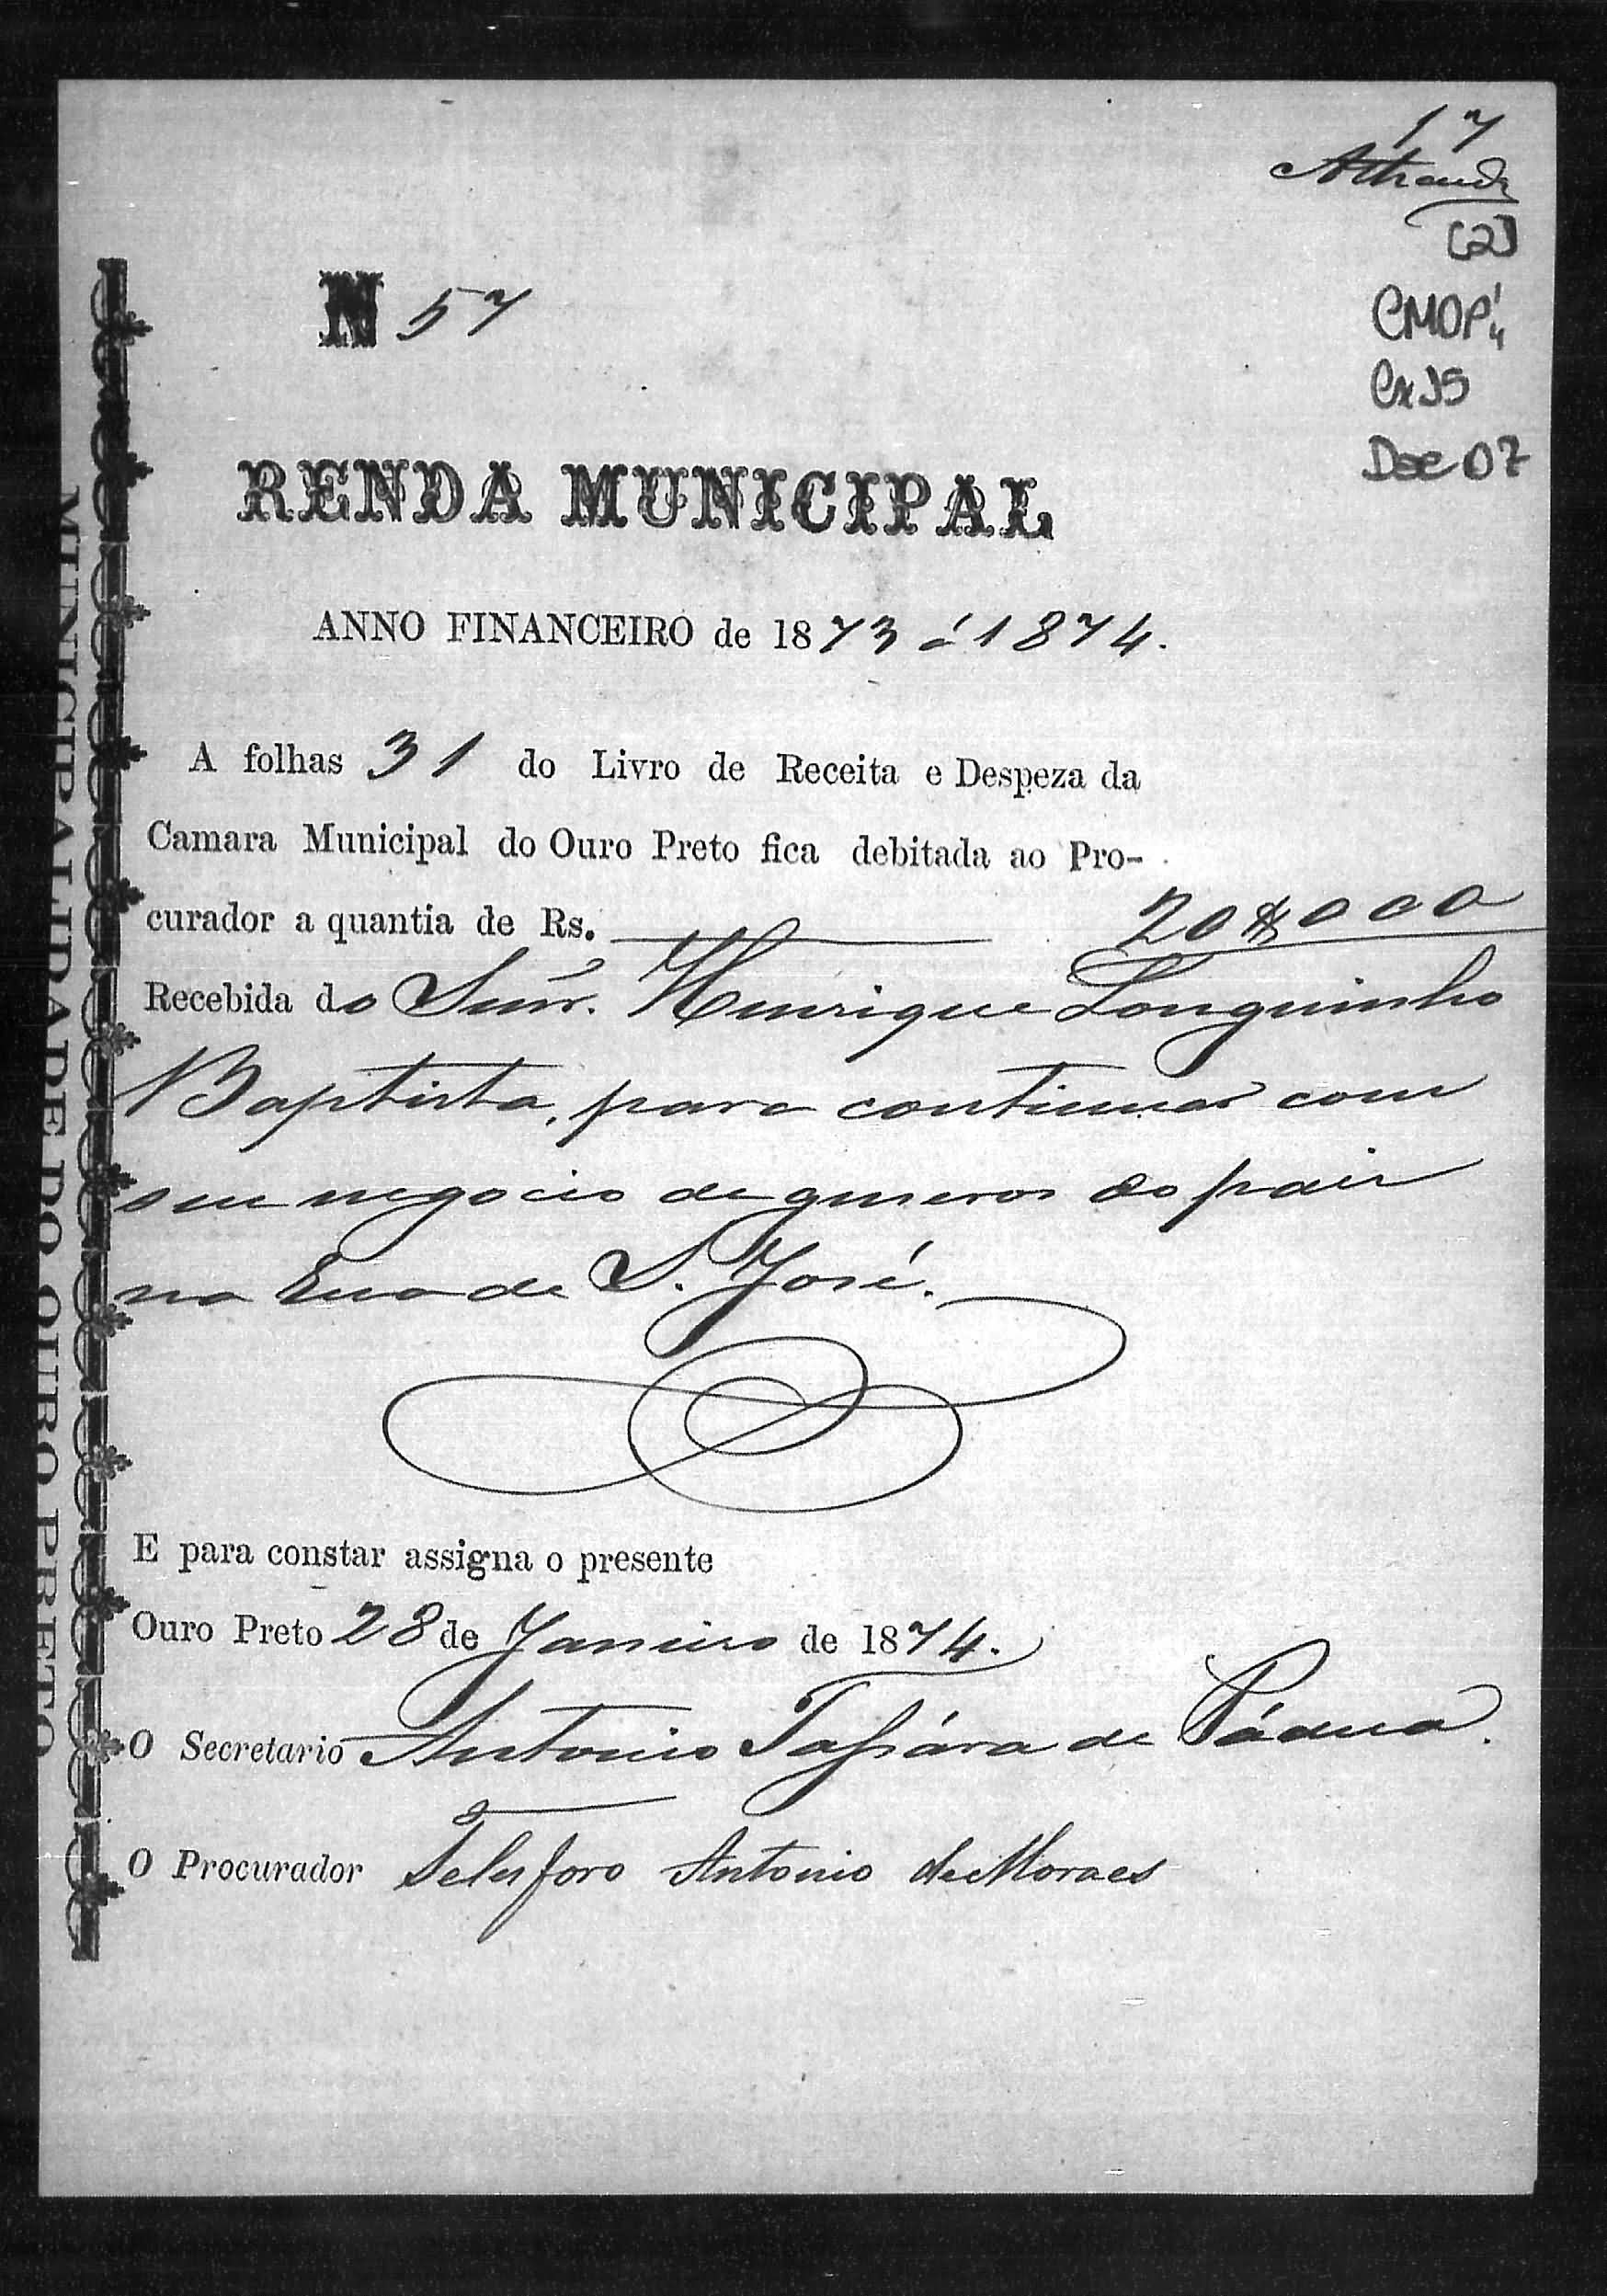 17
[2]
CMOP
Cx 35
Doc 07
N 57
RENDA MUNICIPAL
ANNO FINANCEIRO de 1873 á 1874.
A folhas 31 do Livro de Receita e Despeza da
Camara Municipal do Ouro Preto fica debitada ao Pro-
curador a quantia de Rs. 20$000
Recebida do Snr. Henrique Longuinho
Baptista, para continuar com
seu negocio de generos do pais
na Rua de S. José.
E para constar assigna o presente
Ouro Preto 28 de Janeiro de 1874.
O Secretario Antonio de Pádua.
O Procurador Telesforo Antonio de Moraes
MUNICIPALIDADE DO OURO PRETO